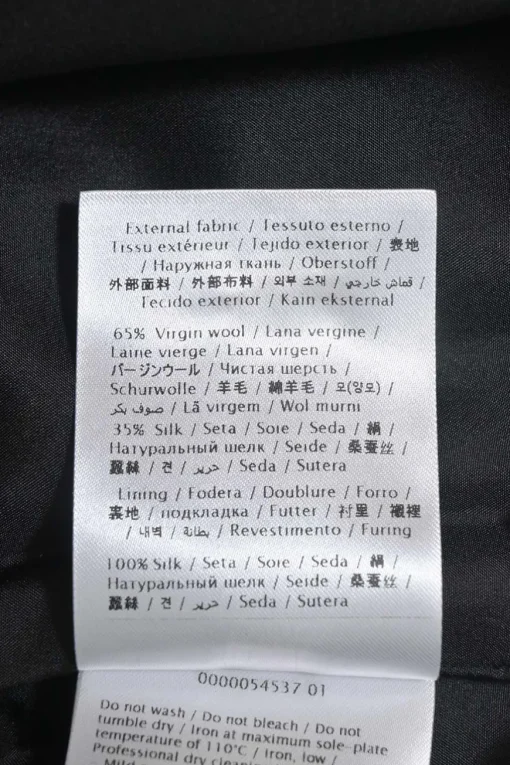 External fabric / Tessuto esterno /
Tissu extérieur / Tejido exterior / 表地
/ Наружная ткань / Oberstoff /
外部面料 / 外部布料 / 외부 소재 / قماش خارجي /
Tecido exterior / Kain eksternal
65% Virgin wool / Lana vergine /
Laine vierge / Lana virgen /
バージンウール / Чистая шерсть /
Schurwolle / 羊毛 / 綿羊毛 / 모(양모) /
صوف بكر / Lã virgem / Wol murni
35% Silk / Seta / Soie / Seda / 絹 /
Натуральный шелк / Seide / 桑蚕丝 /
蠶絲 / 견 / حرير / Seda / Sutera
Lining / Fodera / Doublure / Forro /
裏地 / подкладка / Futter / 衬里 / 襯裡
/ 내벽 / بطانة / Revestimento / Furing
100% Silk / Seta / Soie / Seda / 絹 /
Натуральный шелк / Seide / 桑蚕丝 /
蠶絲 / 견 / حرير / Seda / Sutera
0000054537 01
Do not wash / Do not bleach / Do not
tumble dry / Iron at maximum sole-plate
temperature of 110°C / Iron, low /
Professional dry